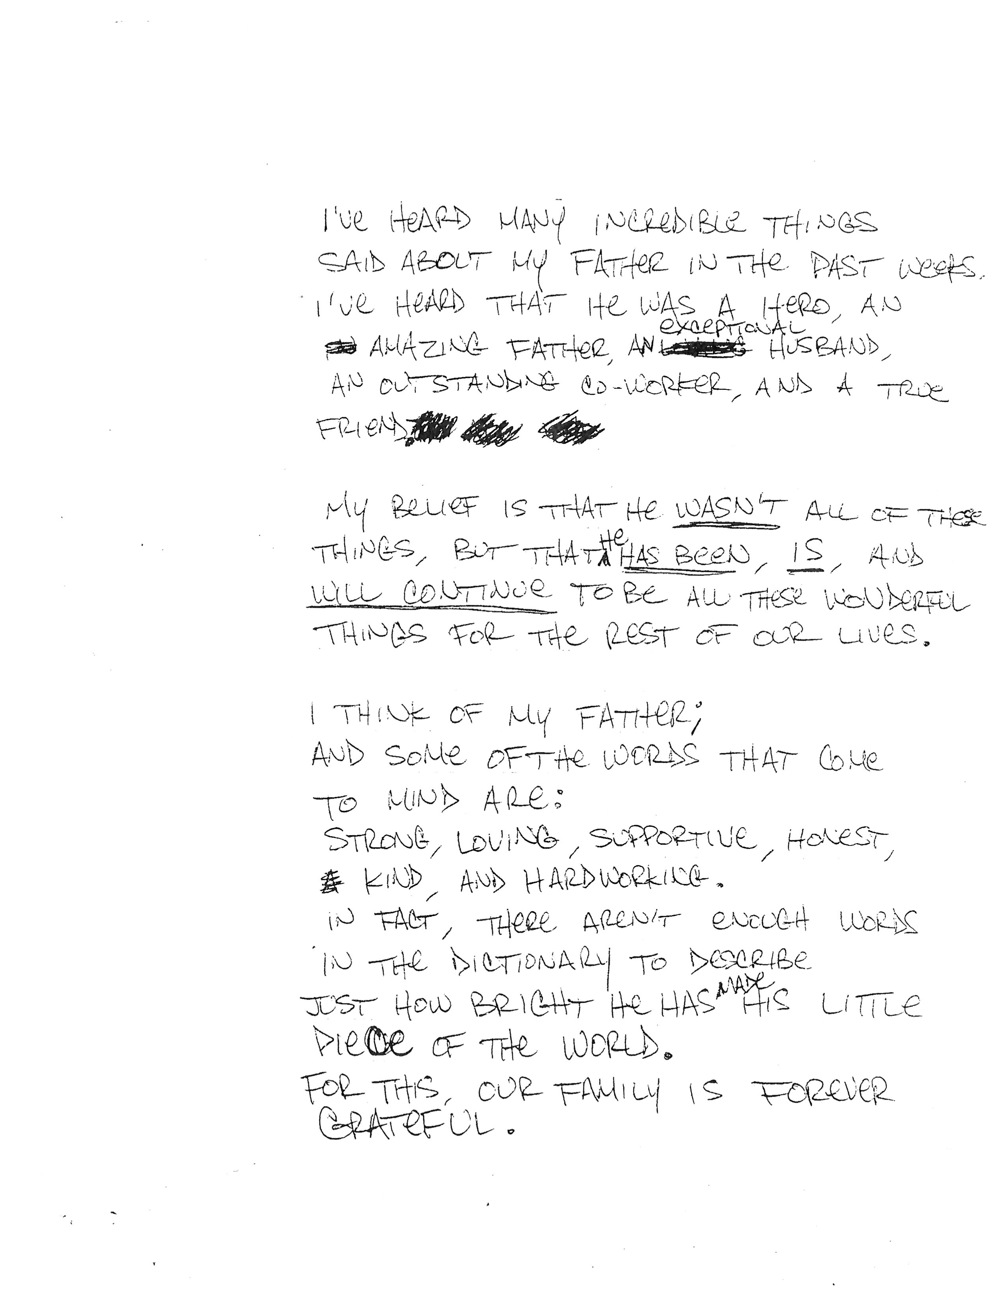 I'VE HEARD MANY INCREDIBLE THINGS
SAID ABOUT MY FATHER IN THE PAST WEEKS.
I'VE HEARD THAT HE WAS A HERO, AN
AMAZING FATHER, AN EXCEPTIONAL HUSBAND,
AN OUTSTANDING CO-WORKER, AND A TRUE
FRIEND.
MY BELIEF IS THAT HE WASN'T ALL OF THESE
THINGS, BUT THAT HE HAS BEEN, IS, AND
WILL CONTINUE TO BE ALL THESE WONDERFUL
THINGS FOR THE REST OF OUR LIVES.
I THINK OF MY FATHER;
AND SOME OF THE WORDS THAT COME
TO MIND ARE:
STRONG, LOVING, SUPPORTIVE, HONEST,
KIND, AND HARDWORKING.
IN FACT, THERE AREN'T ENOUGH WORDS
IN THE DICTIONARY TO DESCRIBE
JUST HOW BRIGHT HE HAS MADE HIS LITTLE
PIECE OF THE WORLD.
FOR THIS, OUR FAMILY IS FOREVER
GRATEFUL.